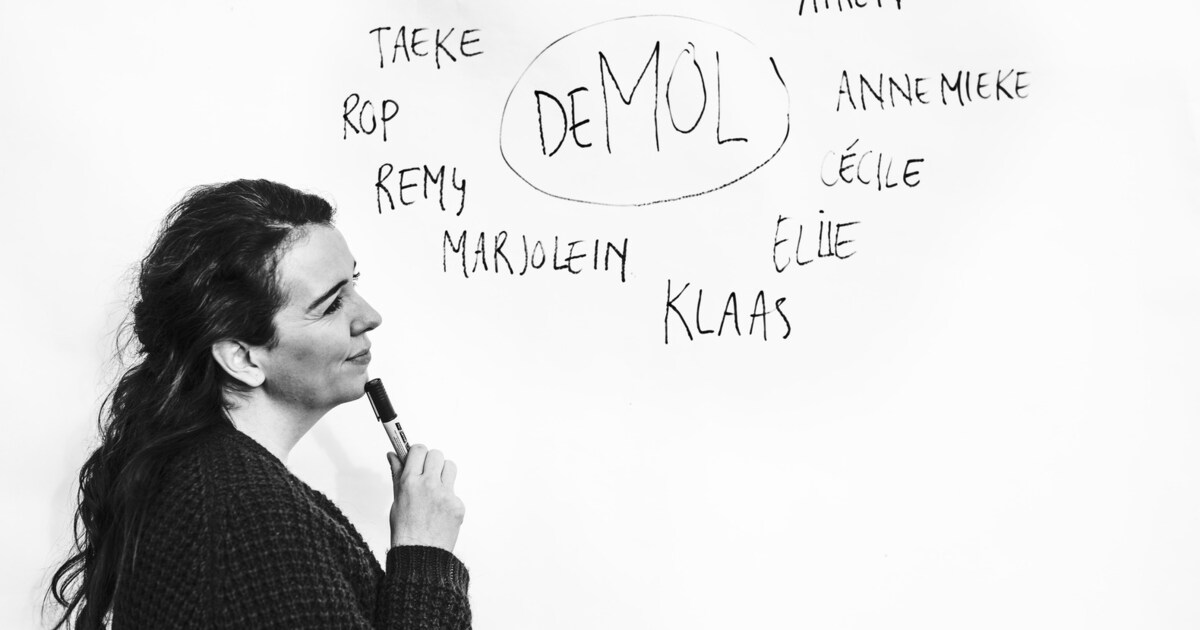 TAEKE
DE MOL
ROP
ANNEMIEKE
REMY
CÉCILE
MARJOLEIN
ELLIE
KLAAS